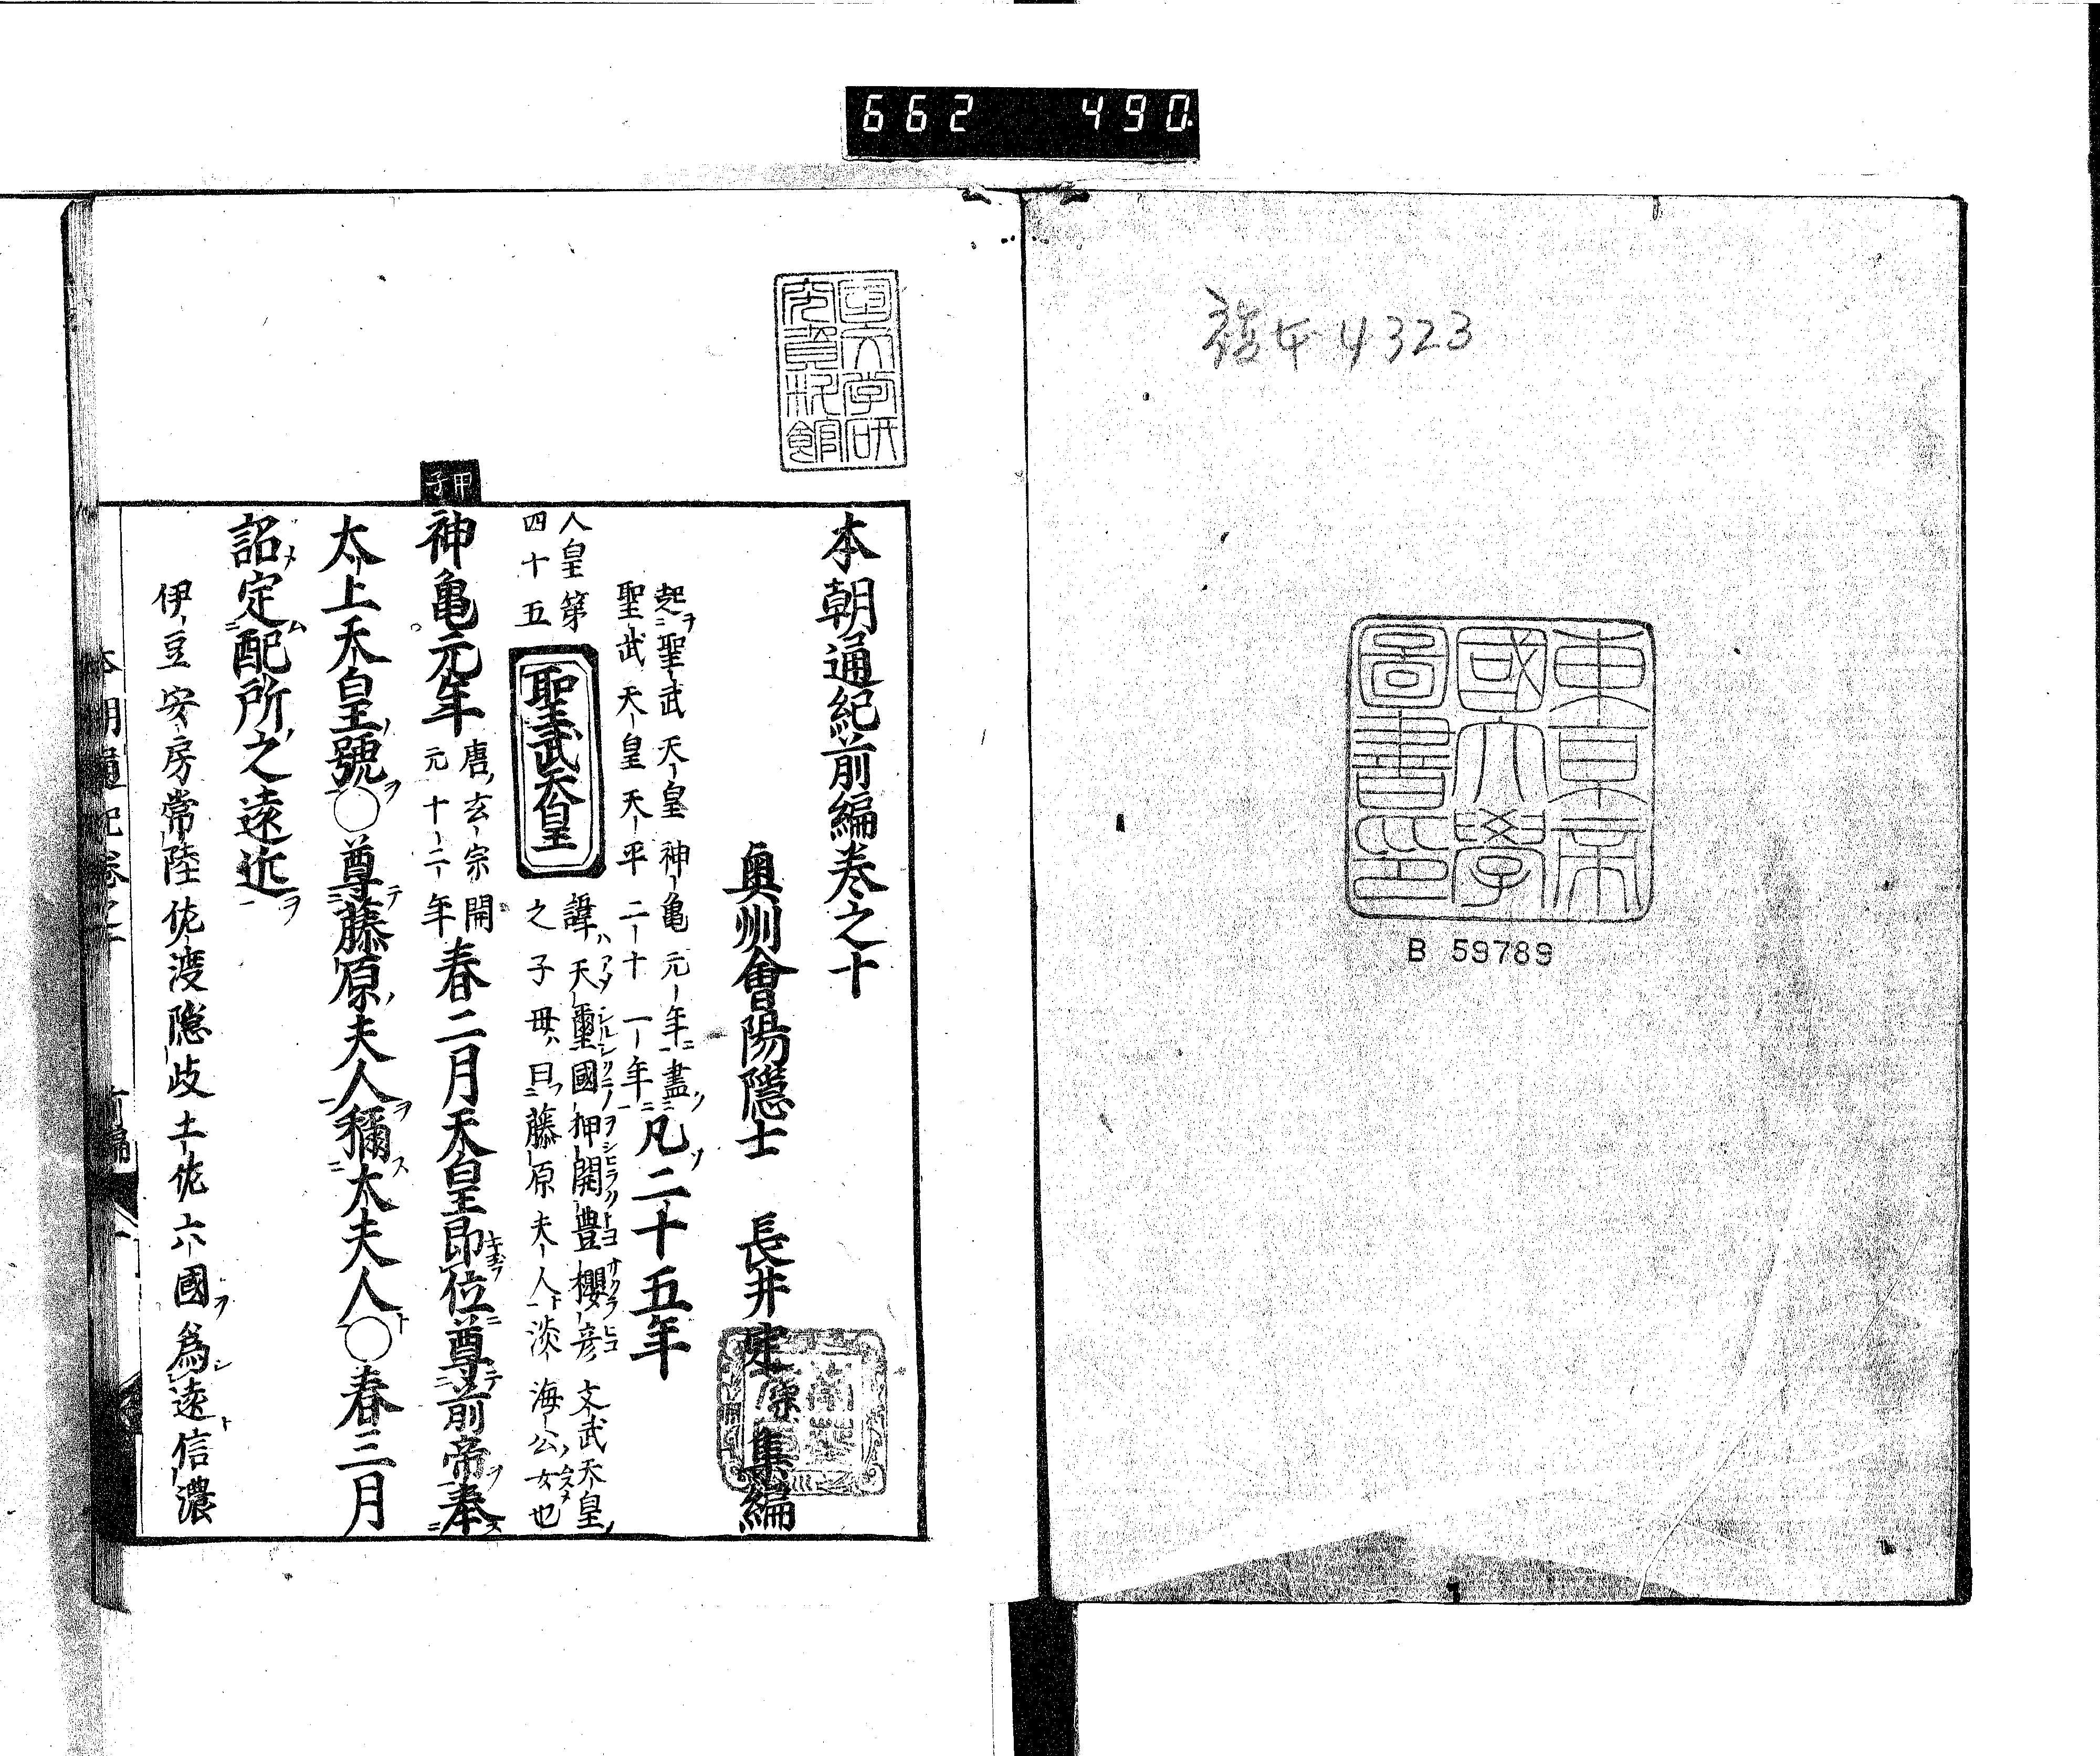 662 490
4323
東京帝
國大學
圖書印
B 59789
国文学研
究資料館
本朝通紀前編巻之十
奥州會陽隱士 長井定宗集編
起聖武天皇神亀元年盡
聖武天皇天平二十一年
凡二十五年
人皇第
四十五
聖武天皇
諱天璽國押開豊櫻彦文武天皇
之子母曰藤原夫人淡海公女也
甲子
神亀元年
唐玄宗開
元十二年
春二月天皇即位尊前帝奉
太上天皇號○尊藤原夫人稱太夫人○春三月
詔定配所之遠近
伊豆安房常陸佐渡隱岐土佐六國爲遠信濃
本朝通紀巻之十 前編 一